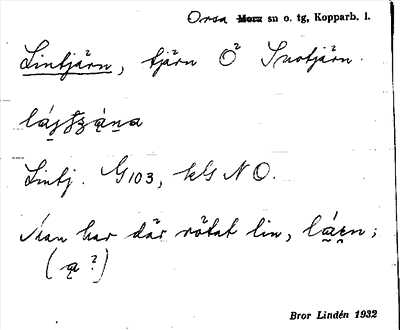 Orsa Mora sn o. tg, Kopparb. l.
Lintjärn, tjärn O² Snotjärn.
Lintj. G103, kG N O.
Man har där rötat lin,
( ą ? )
Bror Lindén 1932